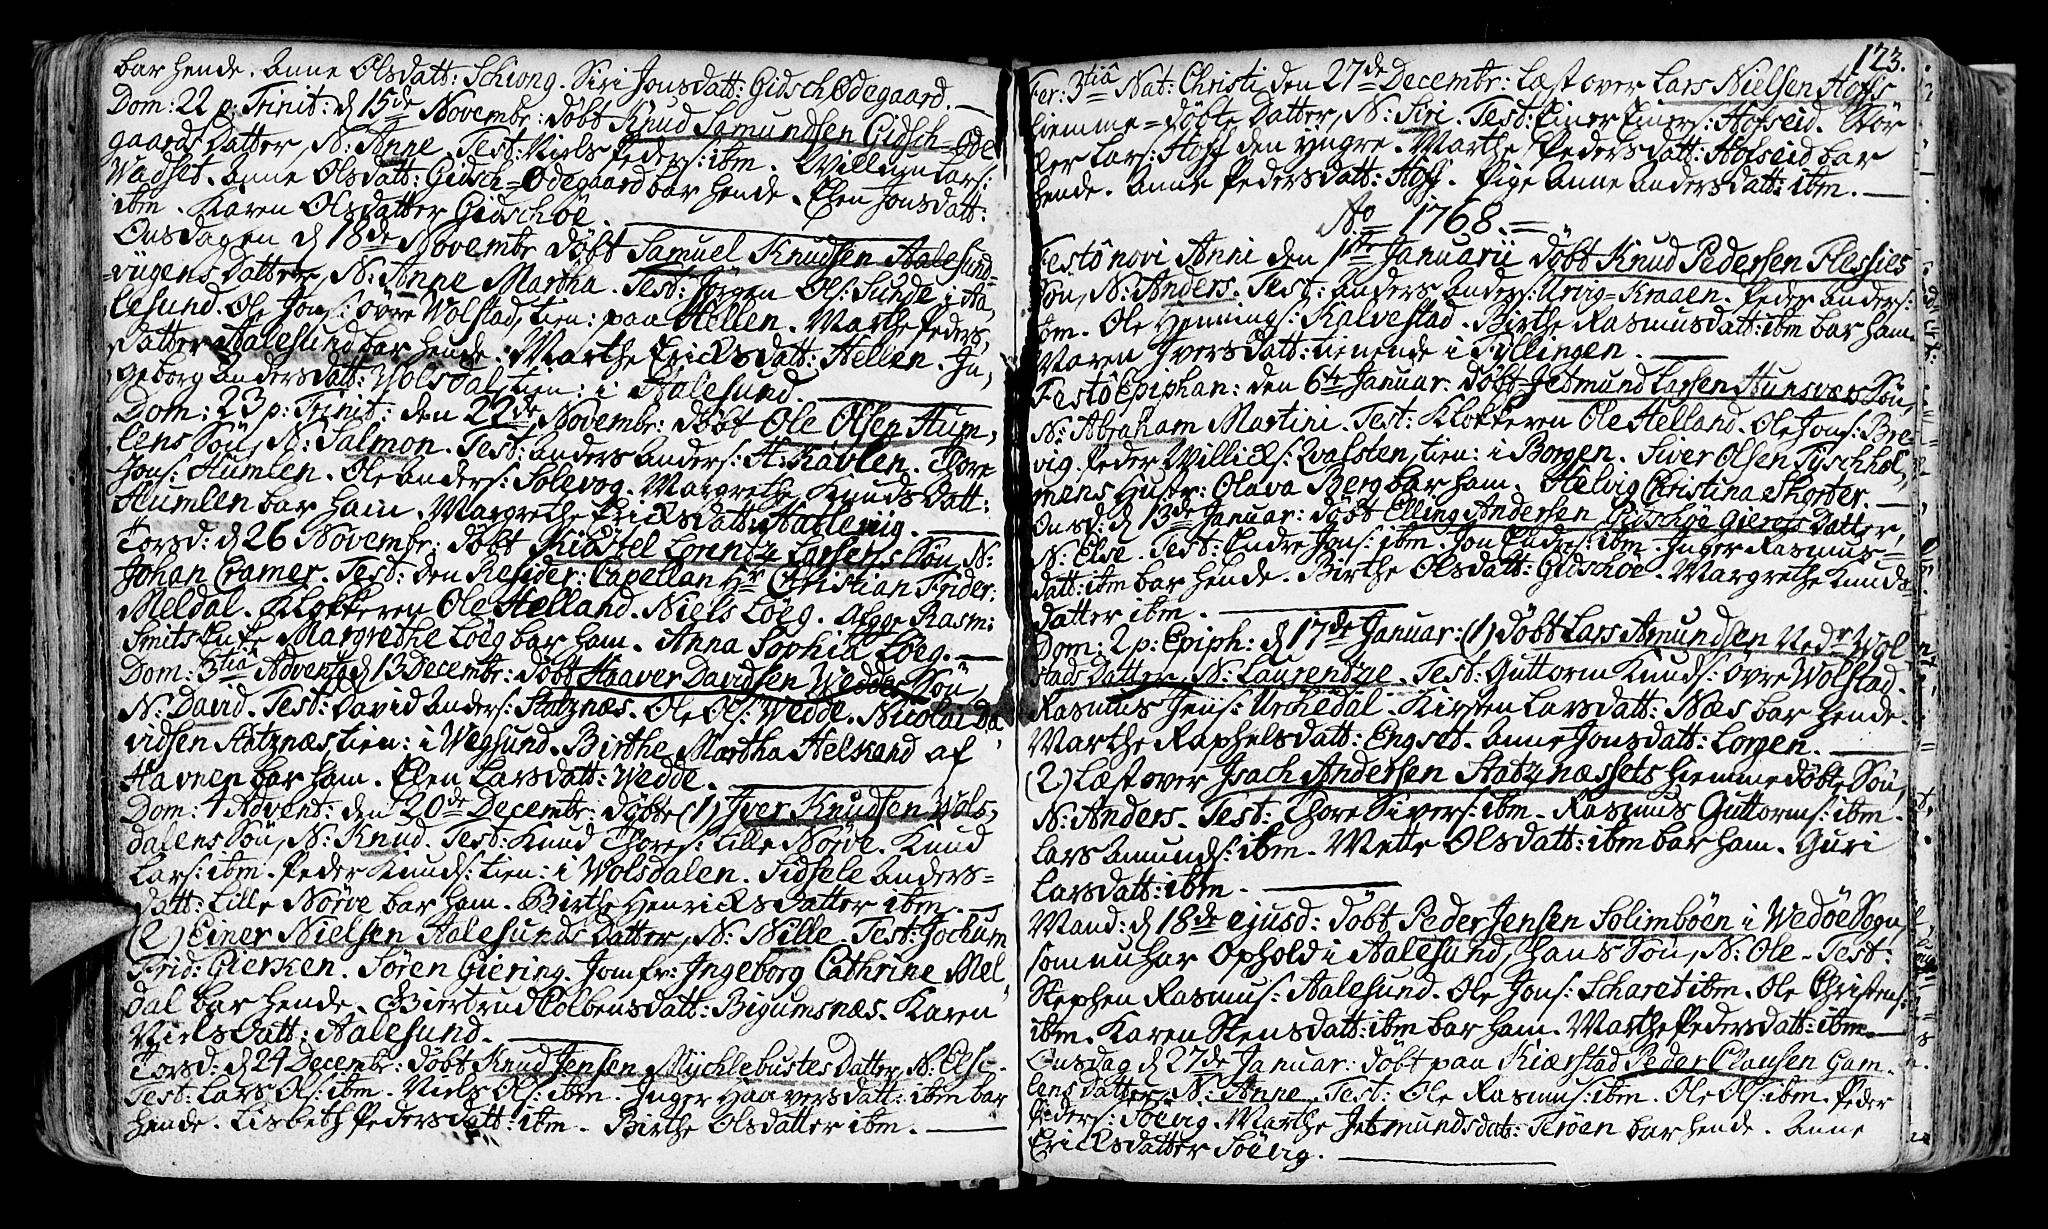 bar hende. Anne Olsdatt: Schiong. Siri Jonsdatt: Gidsch Ødegaard.
Dom: 22 p: Trinit: d 15de Novembr: döbt Knud Samundsen Gidsch=Øde
gaards Datter, N: Anne. Test: Niels Peders: ibm. Villum Lars:
Wadset. Anne Olsdatt: Gidsch=Ødegaard bar hende. Elen Jonsdatt:
ibm. Karen Olsdatter Gidschöe.
Onsdagen d 18de Novembr döbt Samuel Knudsen Aalesund=
=vügens Datter, N: Anne Martha. Test: Jörgen Ols: Sunde i Aa,
lesund. Ole Jons: övre Wolstad, tien: paa Hellen. Marthe Peders,
datter Aalesund bar hende. Marthe Ericksdatt: Hellen. In,
geborg Andersdatt: Wolsdal, tien: i Aalesund.
Dom: 23 p: Trinit: den 22de Novembr: döbt Ole Olsen Hum,
lens Sön, N: Salmon. Test: Anders Anders: H: Kavlen. Thore
Jons: Humlen. Ole Anders: Solevog. Margrethe Knudsdatt:
Humlen bar ham. Margrethe Ericksdatt: Hatlevig.
Torsd: d 26 Novembr: döbt Kichstel Lorentz Larsens Sön, N:
Johan Cramer. Test: den Resider: Capellan Hr Christian Frider:
Meldal. Klokkeren Ole Helland. Niels Loeg. Aegge Rasm:
Smits Enke Margrethe Loeg bar ham. Anna Sophia Loeg.
Dom: 3tiâ Advent: d 13 Decembr: döbt Haaver Davidsen Wedde Sön,
N: David. Test: David Anders: Aatznæs. Ole Ols: Wedde. Nicolai Da,
vidsen Aatznæs tien: i Wegsund. Birthe Martha Helsrand af
Havnen bar ham. Elen Larsdatt: Wedde.
Dom: 4 Advent: den 20de Decembr: döbte (1) Jver Knudsen Wols,
dalens Sön, N: Knud. Test: Knud Thores: Lille Nörve. Knud
Lars: ibm. Peder Knuds: tien: i Wolsdalen. Sidsele Anders=
datt: Lille Nörve bar ham. Birthe Henricksdatter ibm.
(2) Einer Nielsen Aalesunds Datter, N: Nille. Test: Jochum
Frid: Gierken. Sören Giering. Jomfr: Ingeborg Cathrine Mel=
dal bar hende. Giertrud Colbensdatt: Bigumsnæs. Karen
Nielsdatt: Aalesund.
Torsd: d 24 Decembr: döbt Knud Jensen Mÿcklebustes Datter, N: Else.
Test: Lars Ols: ibm. Niels Ols: ibm. Inger Haaversdatt: ibm bar
hende. Lisbeth Pedersdatt: ibm. Birthe Olsdatter ibm.
123.
Fer: 3tiâ Nat: Christi den 27de Decembr: Læst over Lars Nielsen Hoffs
hiemme=döbte Datter, N: Siri. Test: Einer Einers: Hofseid. Stör
ker Lars: Hoff den yngre. Marthe Pedersdatt: Hofseid bar
hende. Anne Pedersdatt: Hoff. Pige Anne Andersdatt: ibm.
Ao 1768.
Festô novi Anni den 1ste Januarii döbt Knud Pedersen Flessies
Sön, N: Anders. Test: Anders Anders: Urvig=Kraaen. Peder Anders:
ibm. Ole Hennings: Kalvestad. Birthe Rasmusdatt: ibm bar ham.
Maren Jversdatt: tienende i Tyllingen.
Festô Epiphan: den 6te Januar: döbt Jetmund Larsen Hunsves Sön,
N: Abraham Martini. Test: Klokkeren Ole Helland. Ole Jons: Bre=
vig. Peder Willicks: Qvalsten, tien: i Borgen. Siver Olsen Tyschhol,
mens Hustr: Olava Berg bar ham. Helvig Christina Skorter.
Onsd: d 13de Januar: döbt Elling Andersen Gidschöe Gierøes Datter,
N: Else. Test: Endre Jons: ibm. Jon Endres: ibm. Inger Rasmus=
datt: ibm bar hende. Birthe Olsdatt: Gidschöe. Margrethe Knuds
datter ibm.
Dom: 2 p: Epiph: d 17de Januar: (1) döbt Lars Amundsen Nedr Wol
stads Datter, N: Laurentze. Test: Guttorm Knuds: övre Wolstad.
Rasmus Jens: Urkedal. Kirsten Larsdatt: Næs bar hende.
Marthe Raphelsdatt: Engset. Anne Jonsdatt: Lorgen.
(2) Læst over Isach Andersen Aatznæssets hiemmedöbte Sön,
N: Anders. Test: Thore Sivers: ibm. Rasmus Guttorms: ibm.
Lars Amunds: ibm. Mette Olsdatt: ibm bar ham. Guri
Larsdatt: ibm.
Mand: d 18de ejusd: döbt Peder Jensen Solimböen i Wedöe Sogn,
som nu har Ophold i Aalesund, hans Sön, N: Ole. Test:
Stephen Rasmus: Aalesund. Ole Jons: Scharet ibm. Ole Christens:
ibm. Karen Stensdatt: ibm bar ham. Marthe Pedersdatt: ibm.
Onsdag d 27de Januar: döbt paa Kiærstad Peder Clausen Gam=
lens Datter, N: Anne. Test: Ole Rasmus: ibm. Ole Ols: ibm. Peder
Peders: Söevig. Marthe Jetmundsdatt: Terøen bar hende. Anne
Ericksdatter Söevig.